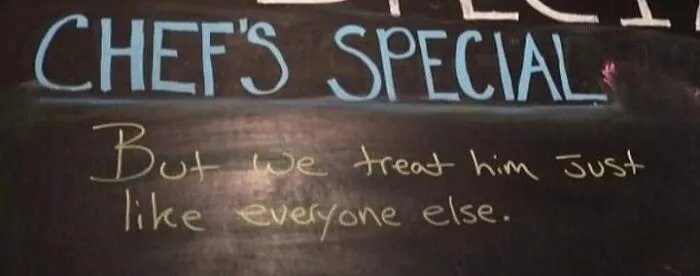 CHEF'S SPECIAL
But we treat him just
like everyone else.